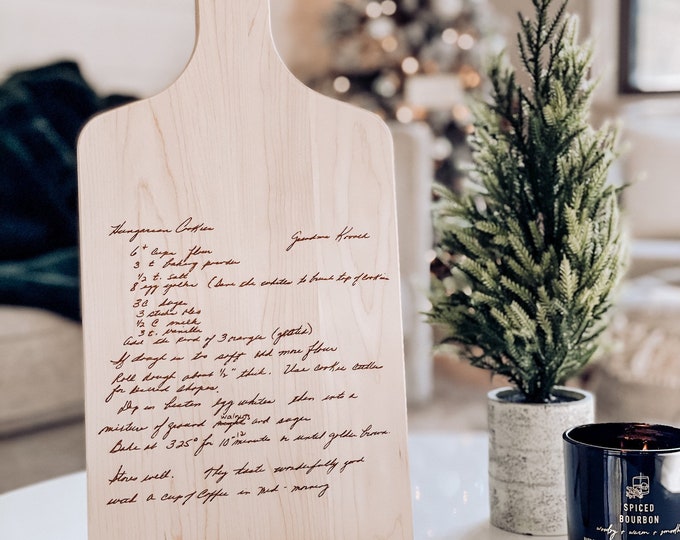 Hungarian Cookies
Grandma Kovach
6+ cups flour
3 t. baking powder
1/2 t. salt
8 egg yolks (Save the whites to brush top of cookies
3 C sugar
3 sticks oleo
1/2 C milk
3 t. vanilla
Add the rind of 3 oranges (grated)
If dough is too soft add more flour
Roll dough about 1/2" thick. Use cookie cutters
for desired shapes.
Dip in beaten egg whites then into a
mixture of ground walnuts and sugar
Bake at 325° for 10-12 minutes or until golden brown.
Stores well. They taste wonderfully good
with a cup of Coffee in mid-morning
SPICED
BOURBON
woodsy + warm + smooth